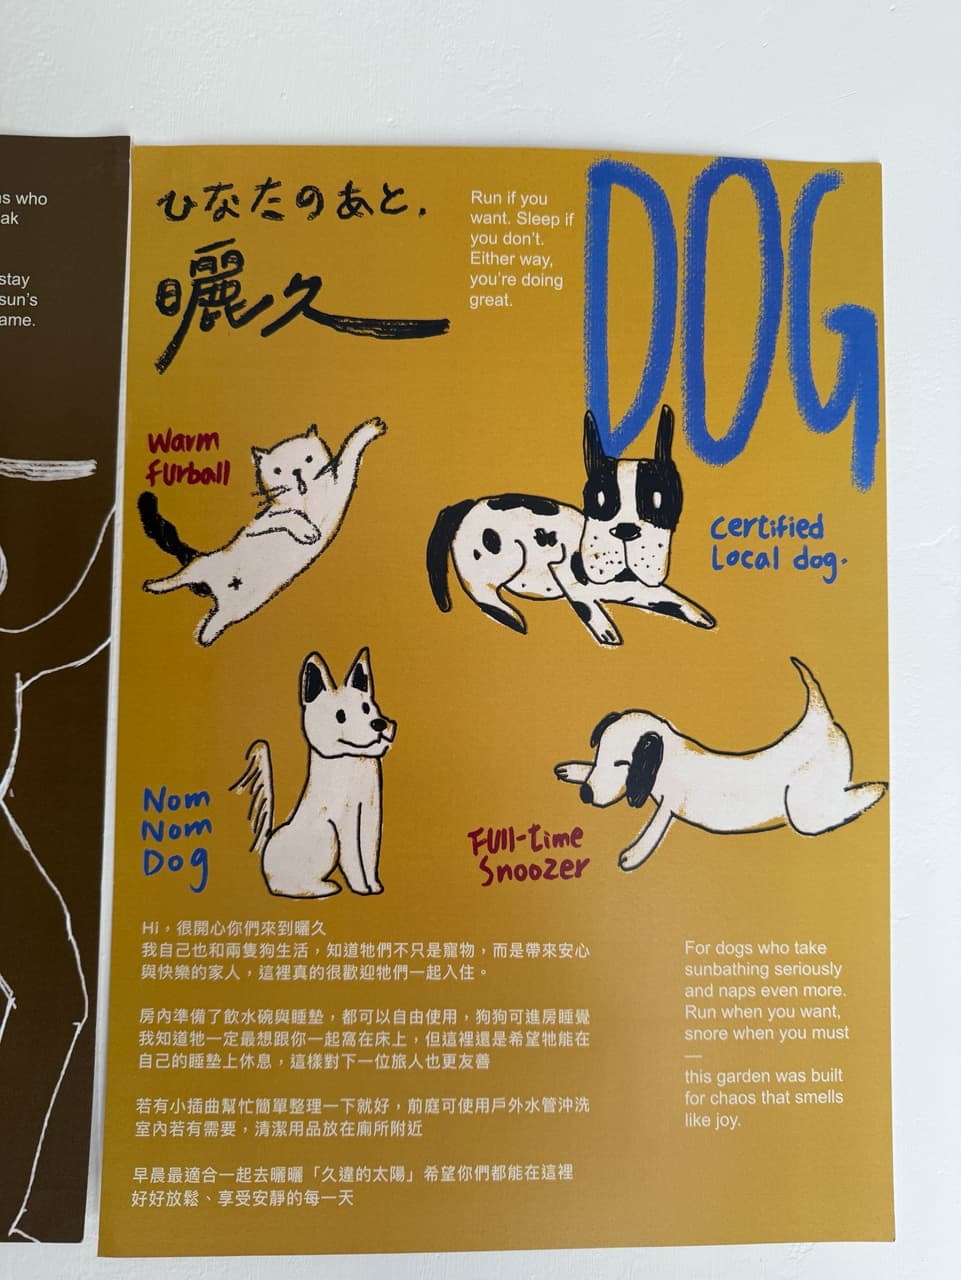 s who
ak
stay
sun's
ame.
ひなたのあと.
曬久
Run if you
want. Sleep if
you don't.
Either way,
you're doing
great.
DOG
Warm
furball
Certified
Local dog.
Nom
Nom
Dog
Full-time
Snoozer
Hi，很開心你們來到曬久
我自己也和兩隻狗生活，知道牠們不只是寵物，而是帶來安心
與快樂的家人，這裡真的很歡迎牠們一起入住。
房內準備了飲水碗與睡墊，都可以自由使用，狗狗可進房睡覺
我知道牠一定最想跟你一起窩在床上，但這裡還是希望牠能在
自己的睡墊上休息，這樣對下一位旅人也更友善
若有小插曲幫忙簡單整理一下就好，前庭可使用戶外水管沖洗
室內若有需要，清潔用品放在廁所附近
早晨最適合一起去曬曬「久違的太陽」希望你們都能在這裡
好好放鬆、享受安靜的每一天
For dogs who take
sunbathing seriously
and naps even more.
Run when you want,
snore when you must
—
this garden was built
for chaos that smells
like joy.